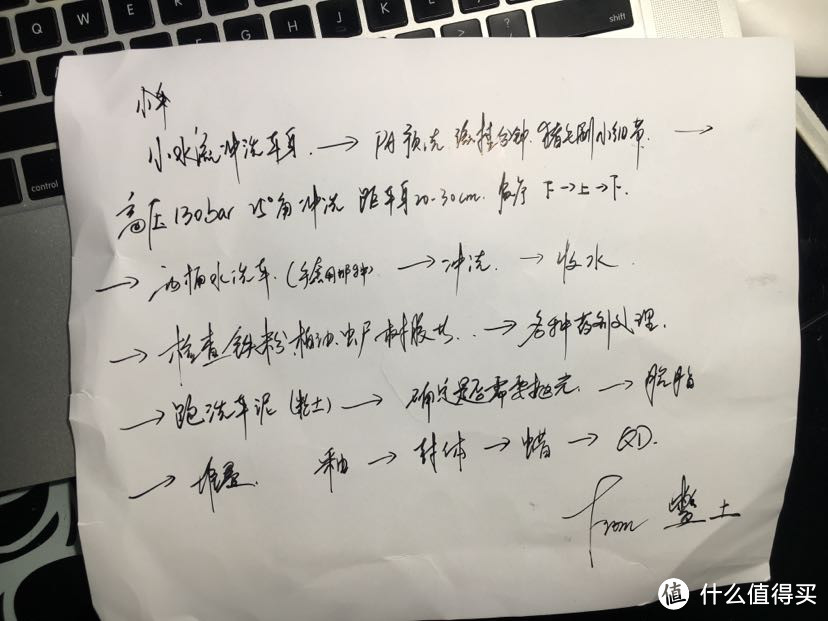 Q W E R H J K L
shift
control
小水流冲洗车身 → PA预洗 分钟 猪毛刷小细节 →
高压130bar 25°角冲洗 距车身20-30cm. 下→上→下.
→ 两桶水洗车. (手套用那种) → 冲洗. → 收水.
→ 检查铁粉.柏油.虫尸.树胶 → 各种药剂处理.
→ 跑洗车泥 (粘土) → 确定是否需要抛光. → 脱脂
→ 堆叠. 釉 → 封体 → 蜡 → QD.
from 土
值 什么值得买